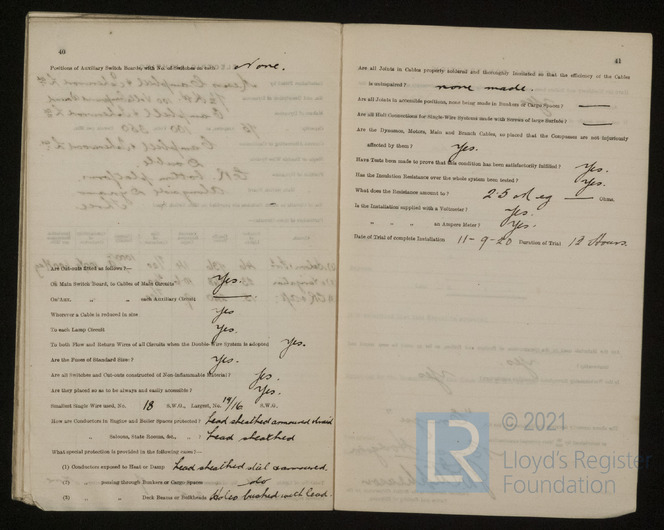 40
Positions of Auxiliary Switch Boards, with No. of Switches on each None.
Are Cut-outs fitted as follows?—
On Main Switch Board, to Cables of Main Circuits Yes.
On Aux. " " each Auxiliary Circuit —
Wherever a Cable is reduced in size Yes
To each Lamp Circuit Yes.
To both Flow and Return Wires of all Circuits when the Double Wire System is adopted Yes.
Are the Fuses of Standard Size? Yes.
Are all Switches and Cut-outs constructed of Non-inflammable Material? Yes.
Are they placed so as to be always and easily accessible? Yes.
Smallest Single Wire used, No. 18 S.W.G., Largest, No. 19/16 S.W.G.
How are Conductors in Engine and Boiler Spaces protected? Lead sheathed armoured
" " Saloons, State Rooms, &c., " ? Lead sheathed
What special protection is provided in the following cases?—
(1) Conductors exposed to Heat or Damp Lead sheathed steel armoured.
(2) " passing through Bunkers or Cargo Spaces do
(3) " " Deck Beams or Bulkheads Holes bushed with lead.
41
Are all Joints in Cables properly soldered and thoroughly insulated so that the efficiency of the Cables
is unimpaired? none made.
Are all Joints in accessible positions, none being made in Bunkers or Cargo Spaces? —
Are all Hull Connections for Single-Wire Systems made with Screws of large Surface? —
Are the Dynamos, Motors, Main and Branch Cables, so placed that the Compasses are not injuriously
affected by them? Yes.
Have Tests been made to prove that this condition has been satisfactorily fulfilled? Yes.
Has the Insulation Resistance over the whole system been tested? Yes.
What does the Resistance amount to? 2·5 Meg — Ohms.
Is the Installation supplied with a Voltmeter? Yes.
" " " an Ampere Meter? Yes.
Date of Trial of complete Installation 11-9-20 Duration of Trial 12 Hours.
© 2021
LR
Lloyd's Register
Foundation